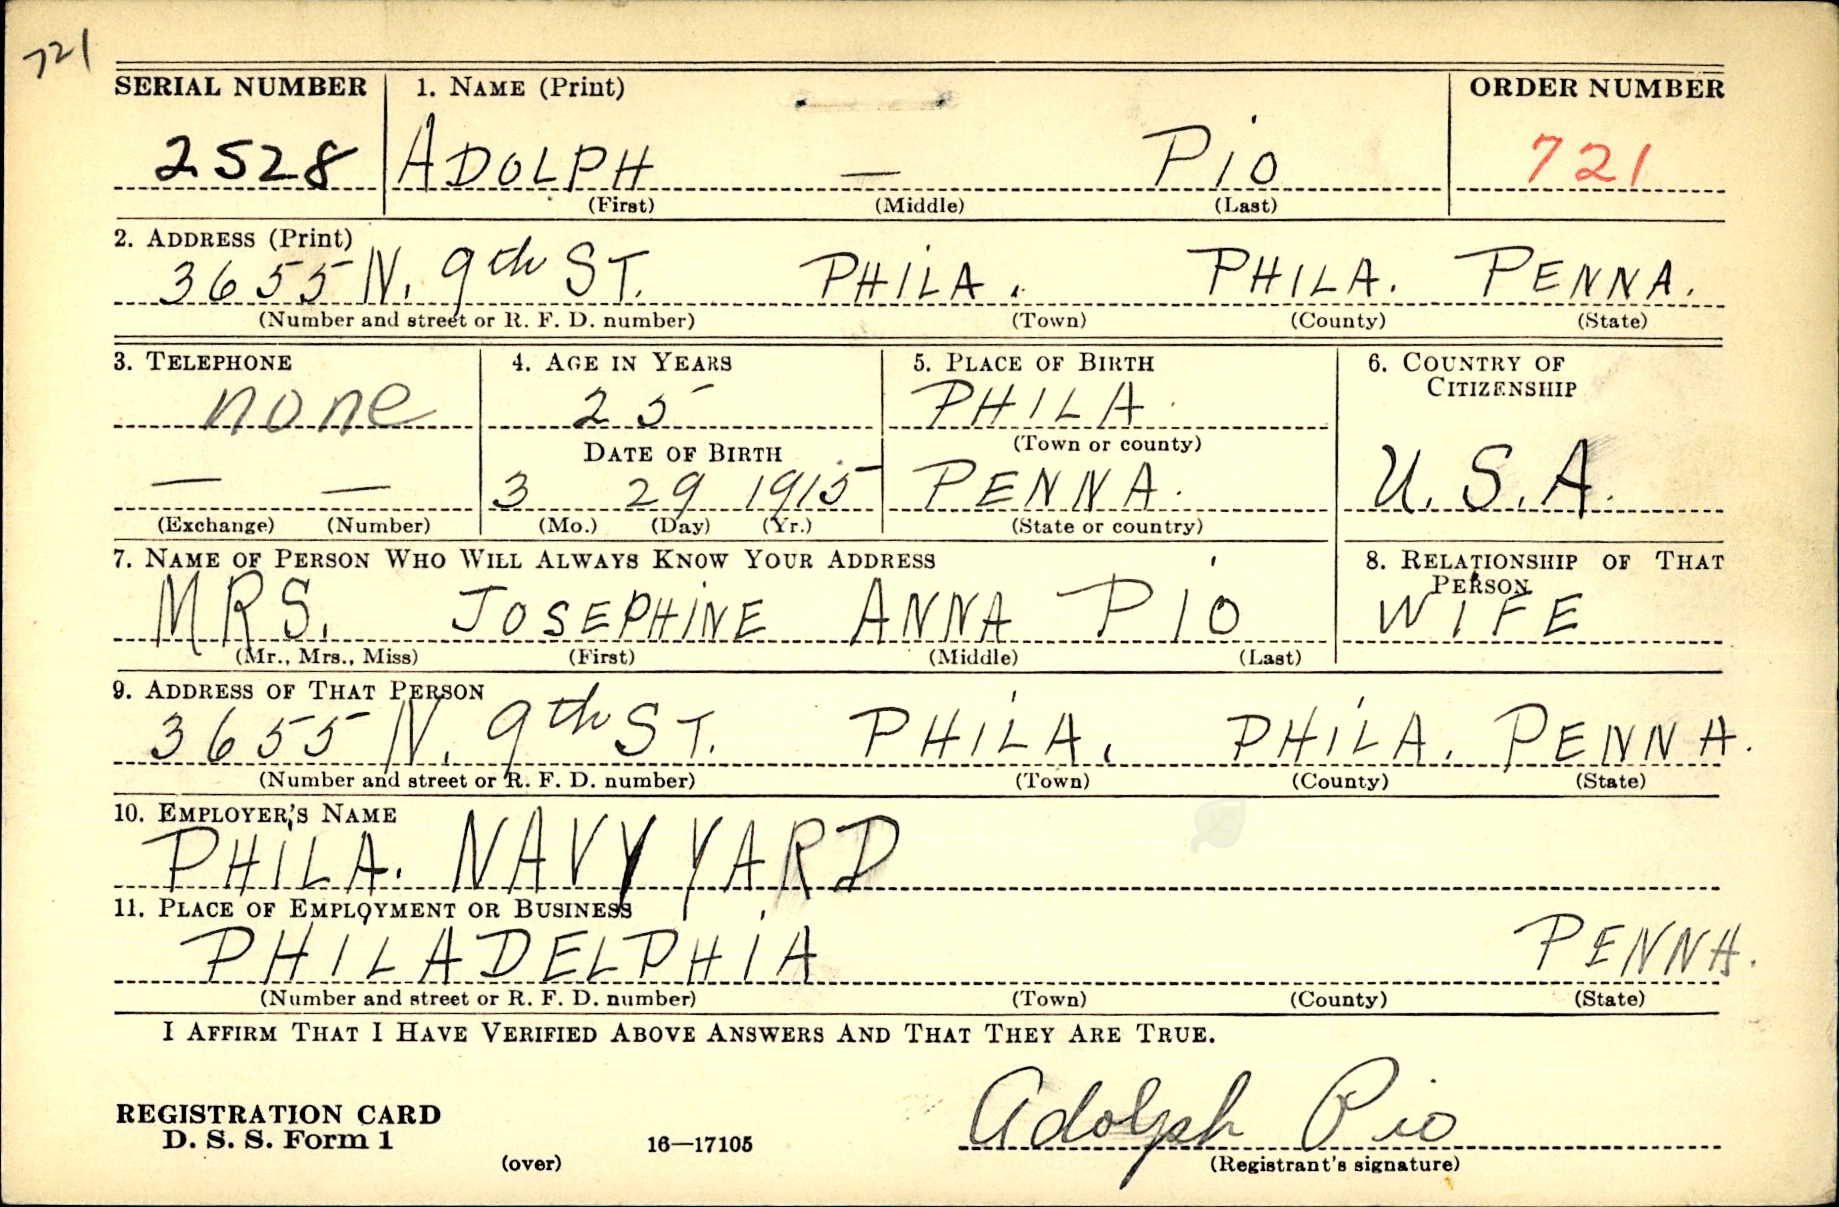 721
SERIAL NUMBER 1. NAME (Print) ORDER NUMBER
2528 ADOLPH — PIO 721
(First) (Middle) (Last)
2. ADDRESS (Print)
3655 N. 9th ST. PHILA. PHILA. PENNA.
(Number and street or R. F. D. number) (Town) (County) (State)
3. TELEPHONE 4. AGE IN YEARS 5. PLACE OF BIRTH 6. COUNTRY OF
CITIZENSHIP
none 25 PHILA.
(Town or county)
DATE OF BIRTH
— — 3 29 1915 PENNA. U.S.A.
(Exchange) (Number) (Mo.) (Day) (Yr.) (State or country)
7. NAME OF PERSON WHO WILL ALWAYS KNOW YOUR ADDRESS 8. RELATIONSHIP OF THAT
PERSON
MRS. JOSEPHINE ANNA PIO WIFE
(Mr., Mrs., Miss) (First) (Middle) (Last)
9. ADDRESS OF THAT PERSON
3655 N. 9th ST. PHILA. PHILA. PENNA.
(Number and street or R. F. D. number) (Town) (County) (State)
10. EMPLOYER'S NAME
PHILA. NAVY YARD
11. PLACE OF EMPLOYMENT OR BUSINESS
PHILADELPHIA PENNA.
(Number and street or R. F. D. number) (Town) (County) (State)
I AFFIRM THAT I HAVE VERIFIED ABOVE ANSWERS AND THAT THEY ARE TRUE.
REGISTRATION CARD
D. S. S. Form 1 16—17105 Adolph Pio
(over) (Registrant's signature)